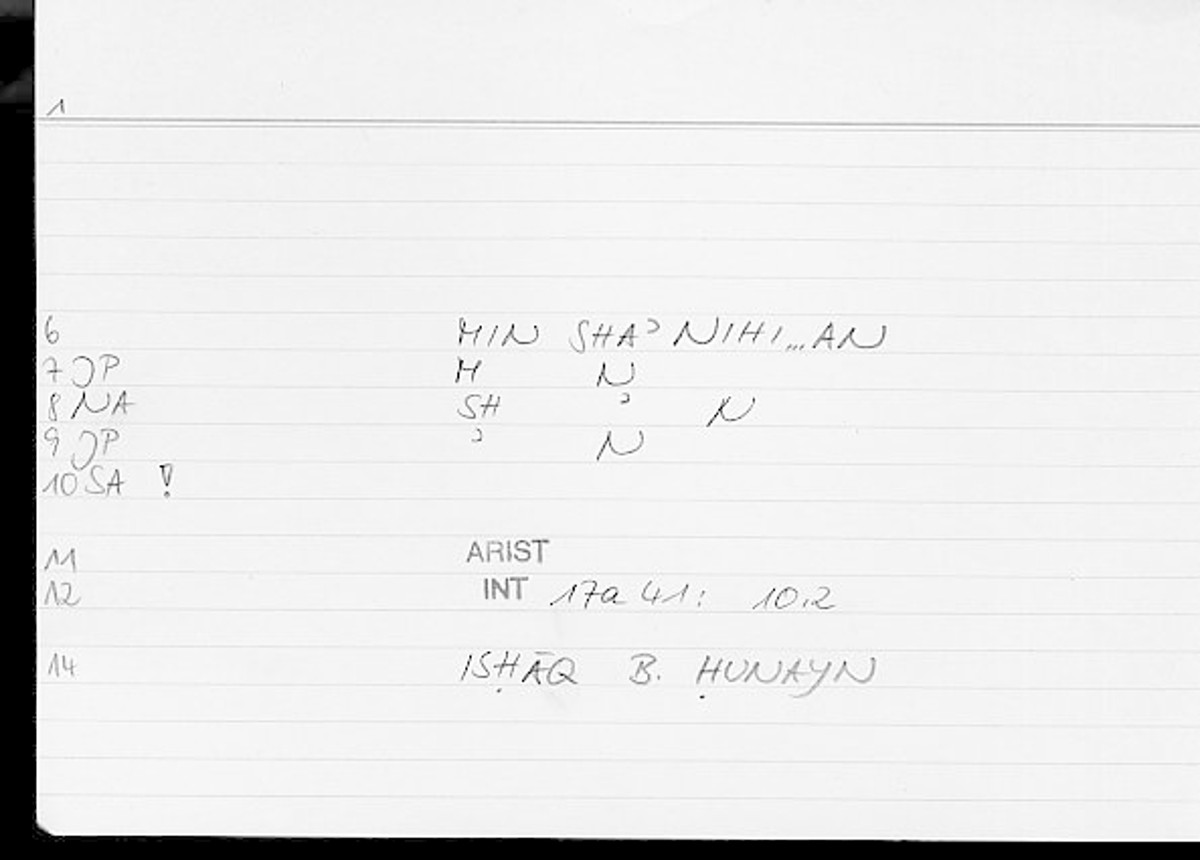 1
6 MIN SHAʾNIHI...AN
7 JP M N
8 NA SH ʾ N
9 JP ʾ N
10 SA !
11 ARIST
12 INT 17a 41: 10.2
14 ISḤĀQ B. ḤUNAYN